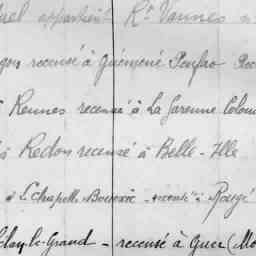 appartient Rt Vannes
recensé à Guémené Penfao
à Rennes recensé à La Garenne Colom
à Redon recensé à Belle-Ille
à L'chapelle Bouexic - recensé à Rougé
le-Grand - recensé à Guer (Mo